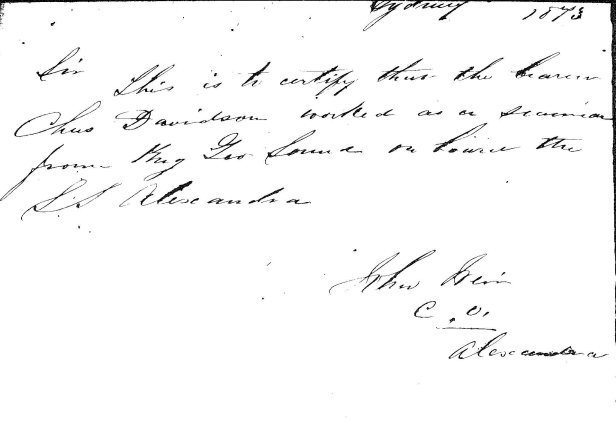 Sydney 1873
Sir This is to certify that the bearer
Chas Davidson worked as a seaman
from King Geo Sound on board the
S.S Alexandra
John
C.O.
Alexandra